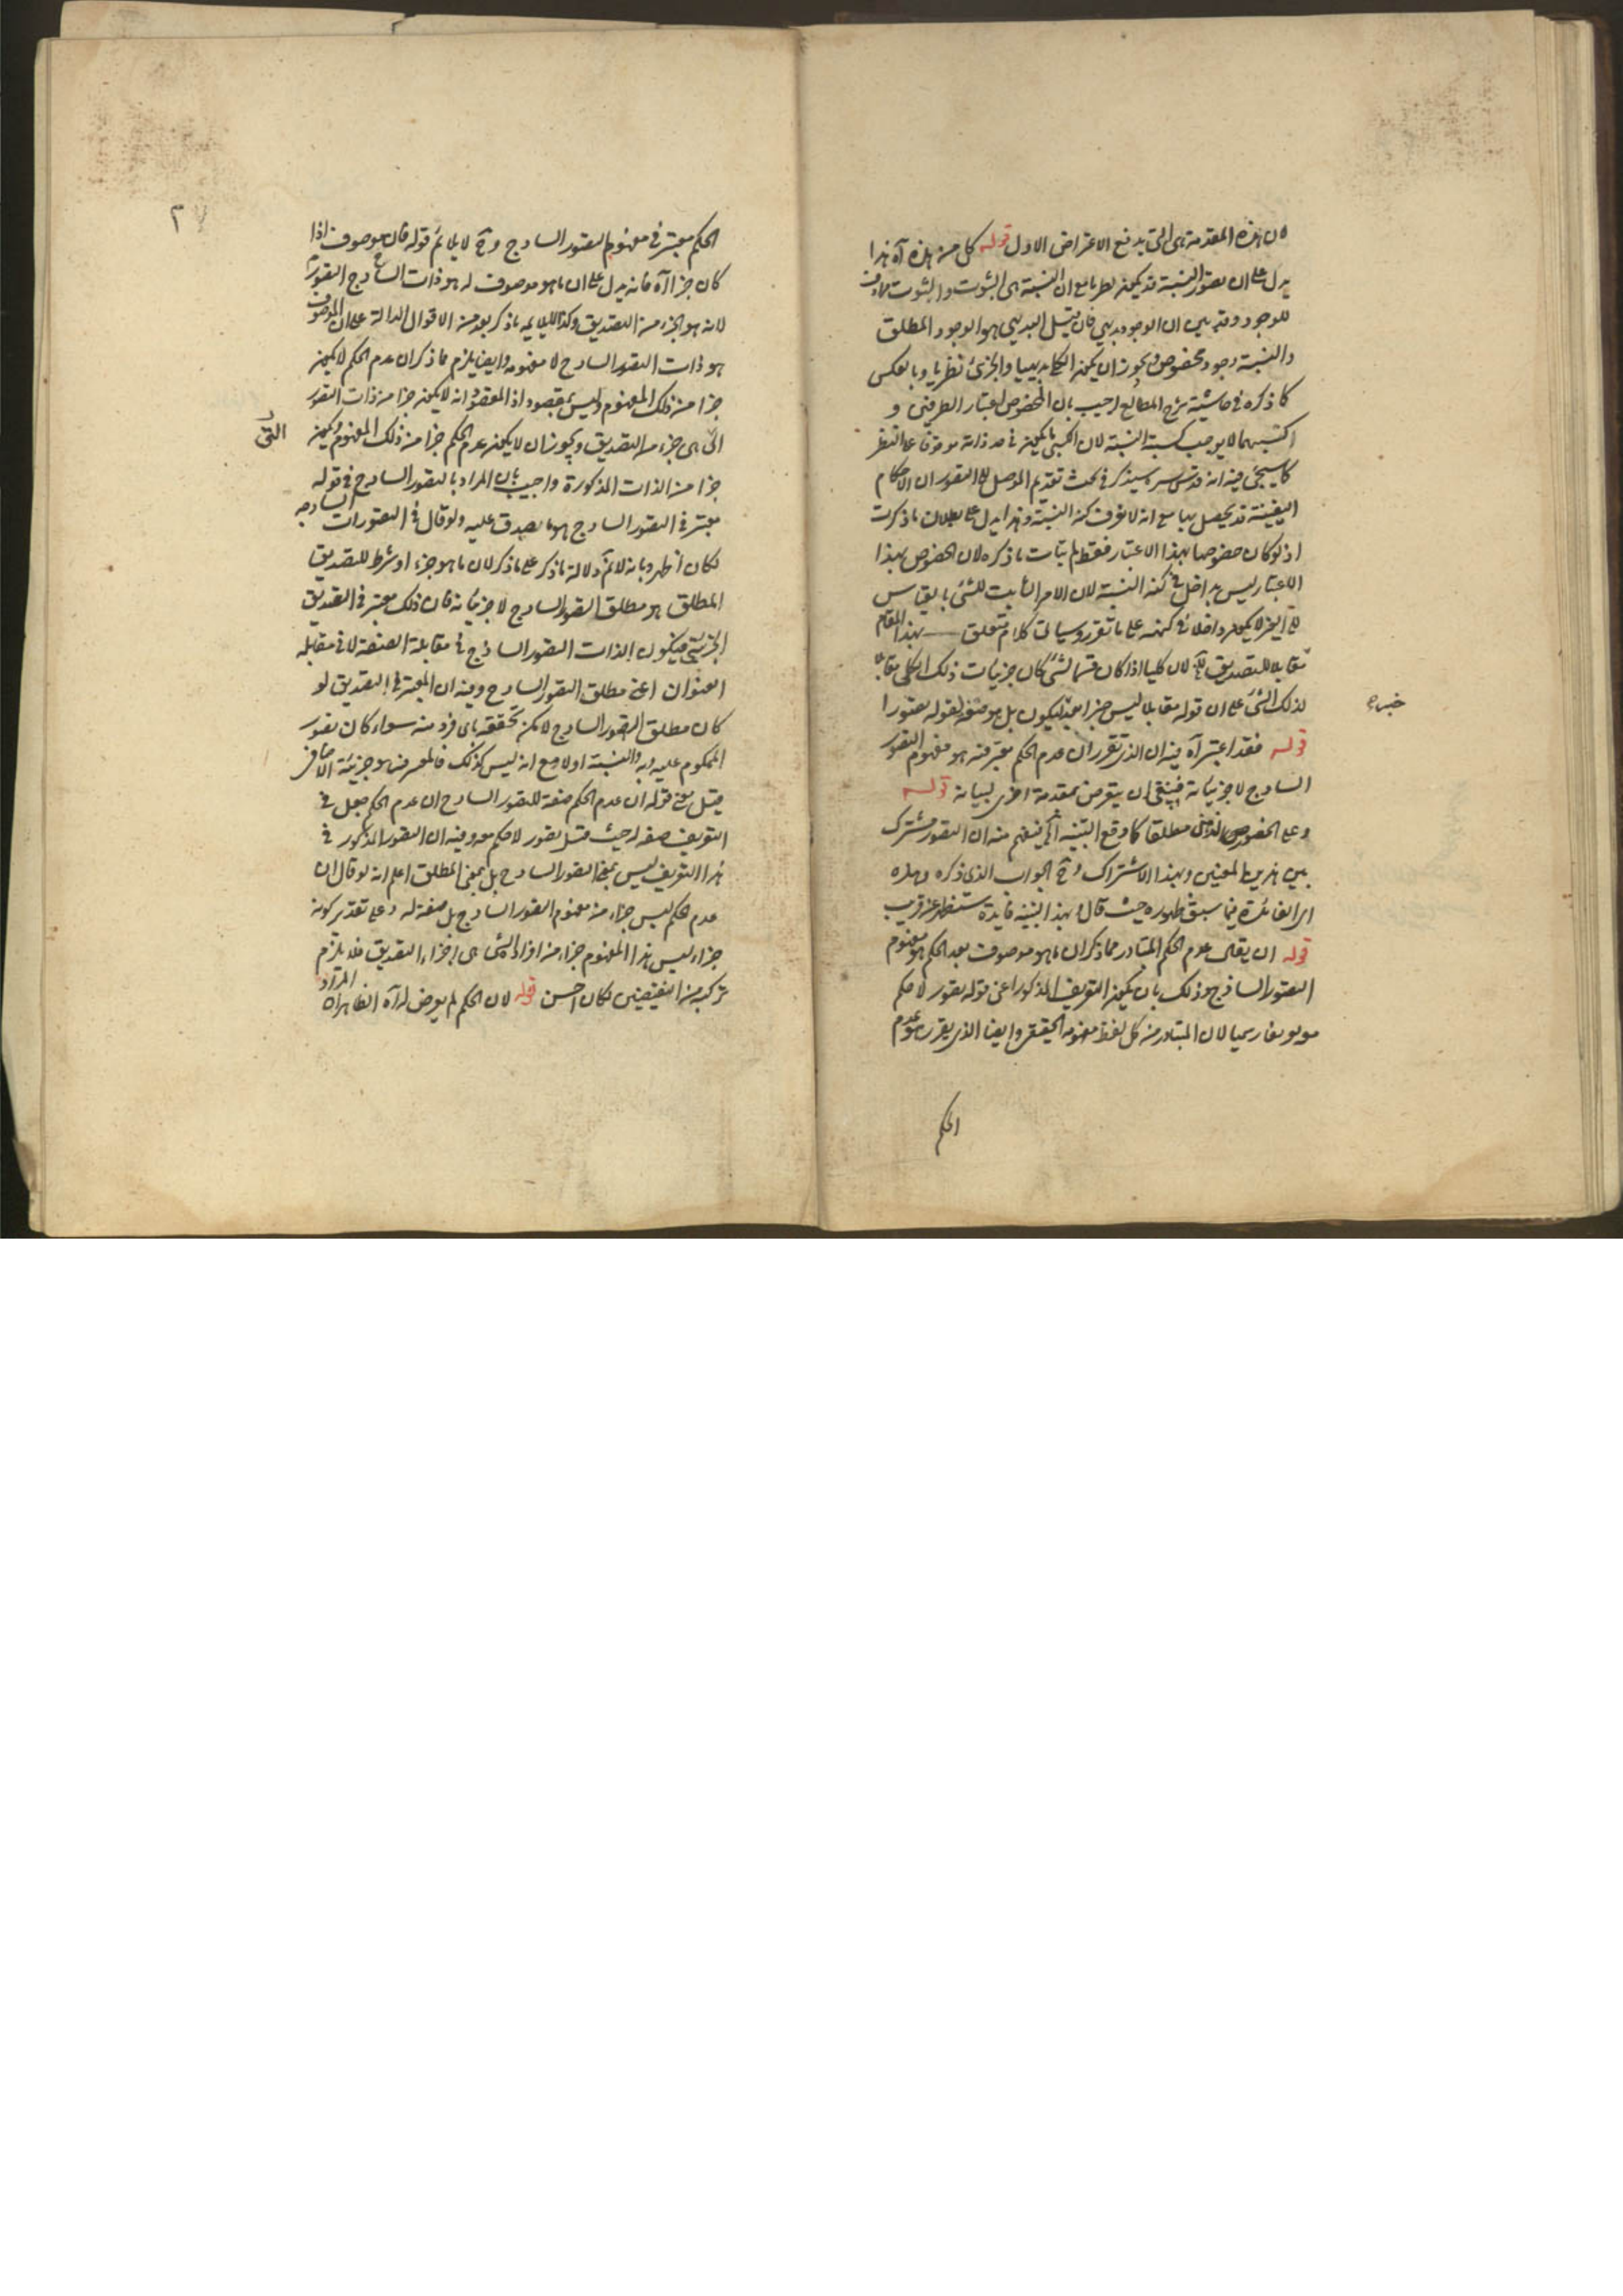 ان هذه المقدمة هى التى يدفع الاعتراض الاول قوله كل من هذه آه هذا
يدل على ان تصور النسبة قد يكون نظريا مع ان النسبة هى الثبوت والثبوت مرادف
للوجود وقد بين ان الوجود بديهى فان قيل البديهى هو الوجود المطلق
والنسبة وجود مخصوص ويجوز ان يكون الكلى بديهيا والجزئى نظريا وبالعكس
كما ذكره فى حاشية شرح المطالع اجيب بان الخصوص باعتبار الطرفين و
كسبهما لا يوجب كسبية النسبة لان الكسبى ما يكون فى حد ذاته موقوفا على النظر
كما سيجئ فيه انه قدس سره سيذكر فى بحث تقديم الموصل الى التصور ان الاحكام
اليقينية قد يحصل بها مع انه لا نعرف كنه النسبة وهذا يدل على بطلان ما ذكرت
اذ لو كان خصوصها بهذا الاعتبار فقط لم يتأت ما ذكره لان الخصوص بهذا
الاعتبار ليس بداخل فى كنه النسبة لان الامر الثابت للشئ بالقياس
الى الغير لا يكون داخلا فى كنهه على ما تقرر وسيأتى كلام متعلق بهذا المقام
مقابلا للتصديق لان كليا اذا كان قسما لشئ كان جزئيات ذلك الكلى مقابلا
لذلك الشئ على ان قوله مقابلا ليس خبرا بعد ليكون بل هو صفة لقوله تصورا
خبره
قوله فقد اعتبر آه فيه ان الذى تقرر ان عدم الحكم معتبر فيه هو مفهوم التصور
الساذج لا جزئياته فينبغى ان يتعرض بمقدمة اخرى لبيانه قوله
وعلى الخصوص مطلقا كما وقع التنبيه فيفهم منه ان التصور مشترك
بين هذين المعنيين وبهذا الاشتراك وح الجواب الذى ذكره
الفائدة فيما سبق ظهوره حيث قال وبهذا التنبيه فائدة ستظهر عن قريب
قوله ان يقال عدم الحكم المتبادر مما ذكر ان ما هو موصوف بعدم الحكم هو مفهوم
التصور الساذج وذلك بان يكون التعريف المذكور اعنى قوله تصور لا حكم
معه تعريفا رسميا لان المتبادر من كل لفظ مفهومه الحقيقى وايضا الذى تقرر هو عدم
الحكم
الحكم معتبر فى مفهوم التصور الساذج وح لا يلائم قوله فان موصوف اذا
كان جزأ آه فانه يدل على ان ما هو موصوف له هو ذات التصور الساذج
لانه هو الجزء من التصديق وكذا لا يلايمه ما ذكر بعد من الاقوال الدالة على ان الموصوف
هو ذات التصور الساذج لا مفهومه وايضا يلزم مما ذكر ان عدم الحكم لا يكون
جزأ من ذلك المفهوم وليس بمقصود اذ المقصود انه لا يكون جزأ من ذات التصور
التى هى جزء من التصديق ويجوز ان لا يكون عدم الحكم جزأ من ذلك المفهوم ويكون
التى
جزأ من الذات المذكورة واجيب بان المراد بالتصور الساذج فى قوله
معتبر فى التصور الساذج هو ما يصدق عليه ولو قال فى التصورات الساذجة
لكان اظهر وبانه لا نم دلالة ما ذكر على ما ذكر لان ما هو جزء او شرط للتصديق
المطلق هو مطلق التصور الساذج لا جزئياته فان ذلك معتبر فى التصديق
الجزئى فيكون الذات التصور الساذج فى مقابلة الصفة لا فى مقابلة
العنوان اعنى مطلق التصور الساذج وفيه ان المعتبر فى التصديق لو
كان مطلق التصور الساذج لامكن تحققه باى فرد منه سواء كان تصور
المحكوم عليه وبه والنسبة او لا مع انه ليس كذلك فالمعرف هو جزئية الاضافى
قيل معنى قوله ان عدم الحكم صفة للتصور الساذج ان عدم الحكم جعل فى
التعريف صفة له حيث قيل تصور لا حكم معه وفيه ان التصور المذكور فى
هذا التعريف ليس بمعنى التصور الساذج بل بمعنى المطلق اعلم انه لو قال ان
عدم الحكم ليس جزأ من مفهوم التصور الساذج بل صفة له وعلى تقدير كونه
جزأ ليس هذا المفهوم جزأ من افراد التى هى اجزاء التصديق فلا يلزم
تركبه من النقيضين لكان احسن قوله لان الحكم لم يعرض له آه الظاهر ان المراد